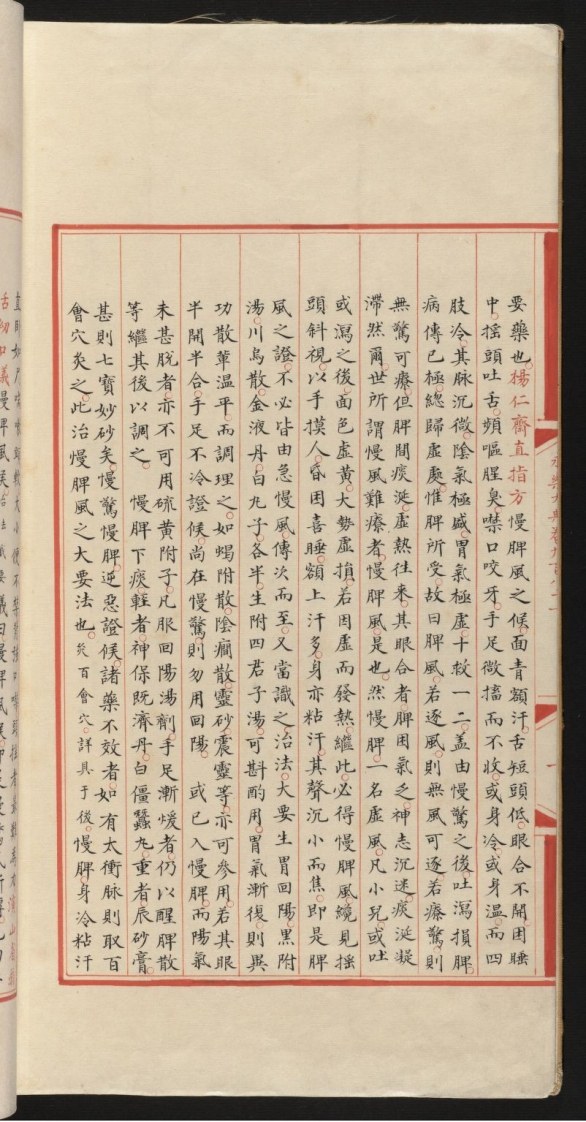 要藥也楊仁齋直指方慢脾風之候面青額汗舌短頭低眼合不開困睡
中搖頭吐舌頻嘔腥臭噤口咬牙手足微搐而不收或身冷或身溫而四
肢冷其脉沉微陰氣極盛胃氣極虛十救一二蓋由慢驚之後吐瀉損脾
病傳已極總歸虛處惟脾所受故曰脾風若逐風則無風可逐若療驚則
無驚可療但脾間痰涎虛熱往來其眼合者脾困氣乏神志沉迷痰涎凝
滯然爾世所謂慢風難療者慢脾風是也然慢脾一名虛風凡小兒或吐
或瀉之後面色虛黃大勢虛損若因虛而發熱繼此必得慢脾風纔見搖
頭斜視以手摸人昏困喜睡額上汗多身亦粘汗其聲沉小而焦即是脾
風之證不必皆由急慢風傳次而至又當識之治法大要生胃回陽黑附
湯川烏散金液丹白九子各半生附四君子湯可斟酌用胃氣漸復則異
功散軰溫平而調理之如蝎附散陰癎散靈砂震靈等亦可參用若其眼
半開半合手足不冷證候尚在慢驚則勿用回陽或已入慢脾而陽氣
未甚脫者亦不可用硫黃附子凡服回陽湯劑手足漸煖者仍以醒脾散
等繼其後以調之慢脾下痰軽者神保既濟丹白僵蠶丸重者辰砂膏
甚則七寶妙砂矣慢驚慢脾逆惡證候諸藥不效者如有太衝脉則取百
會穴灸之此治慢脾風之大要法也灸百會穴詳具于後慢脾身冷粘汗
永樂大典卷九百八十一